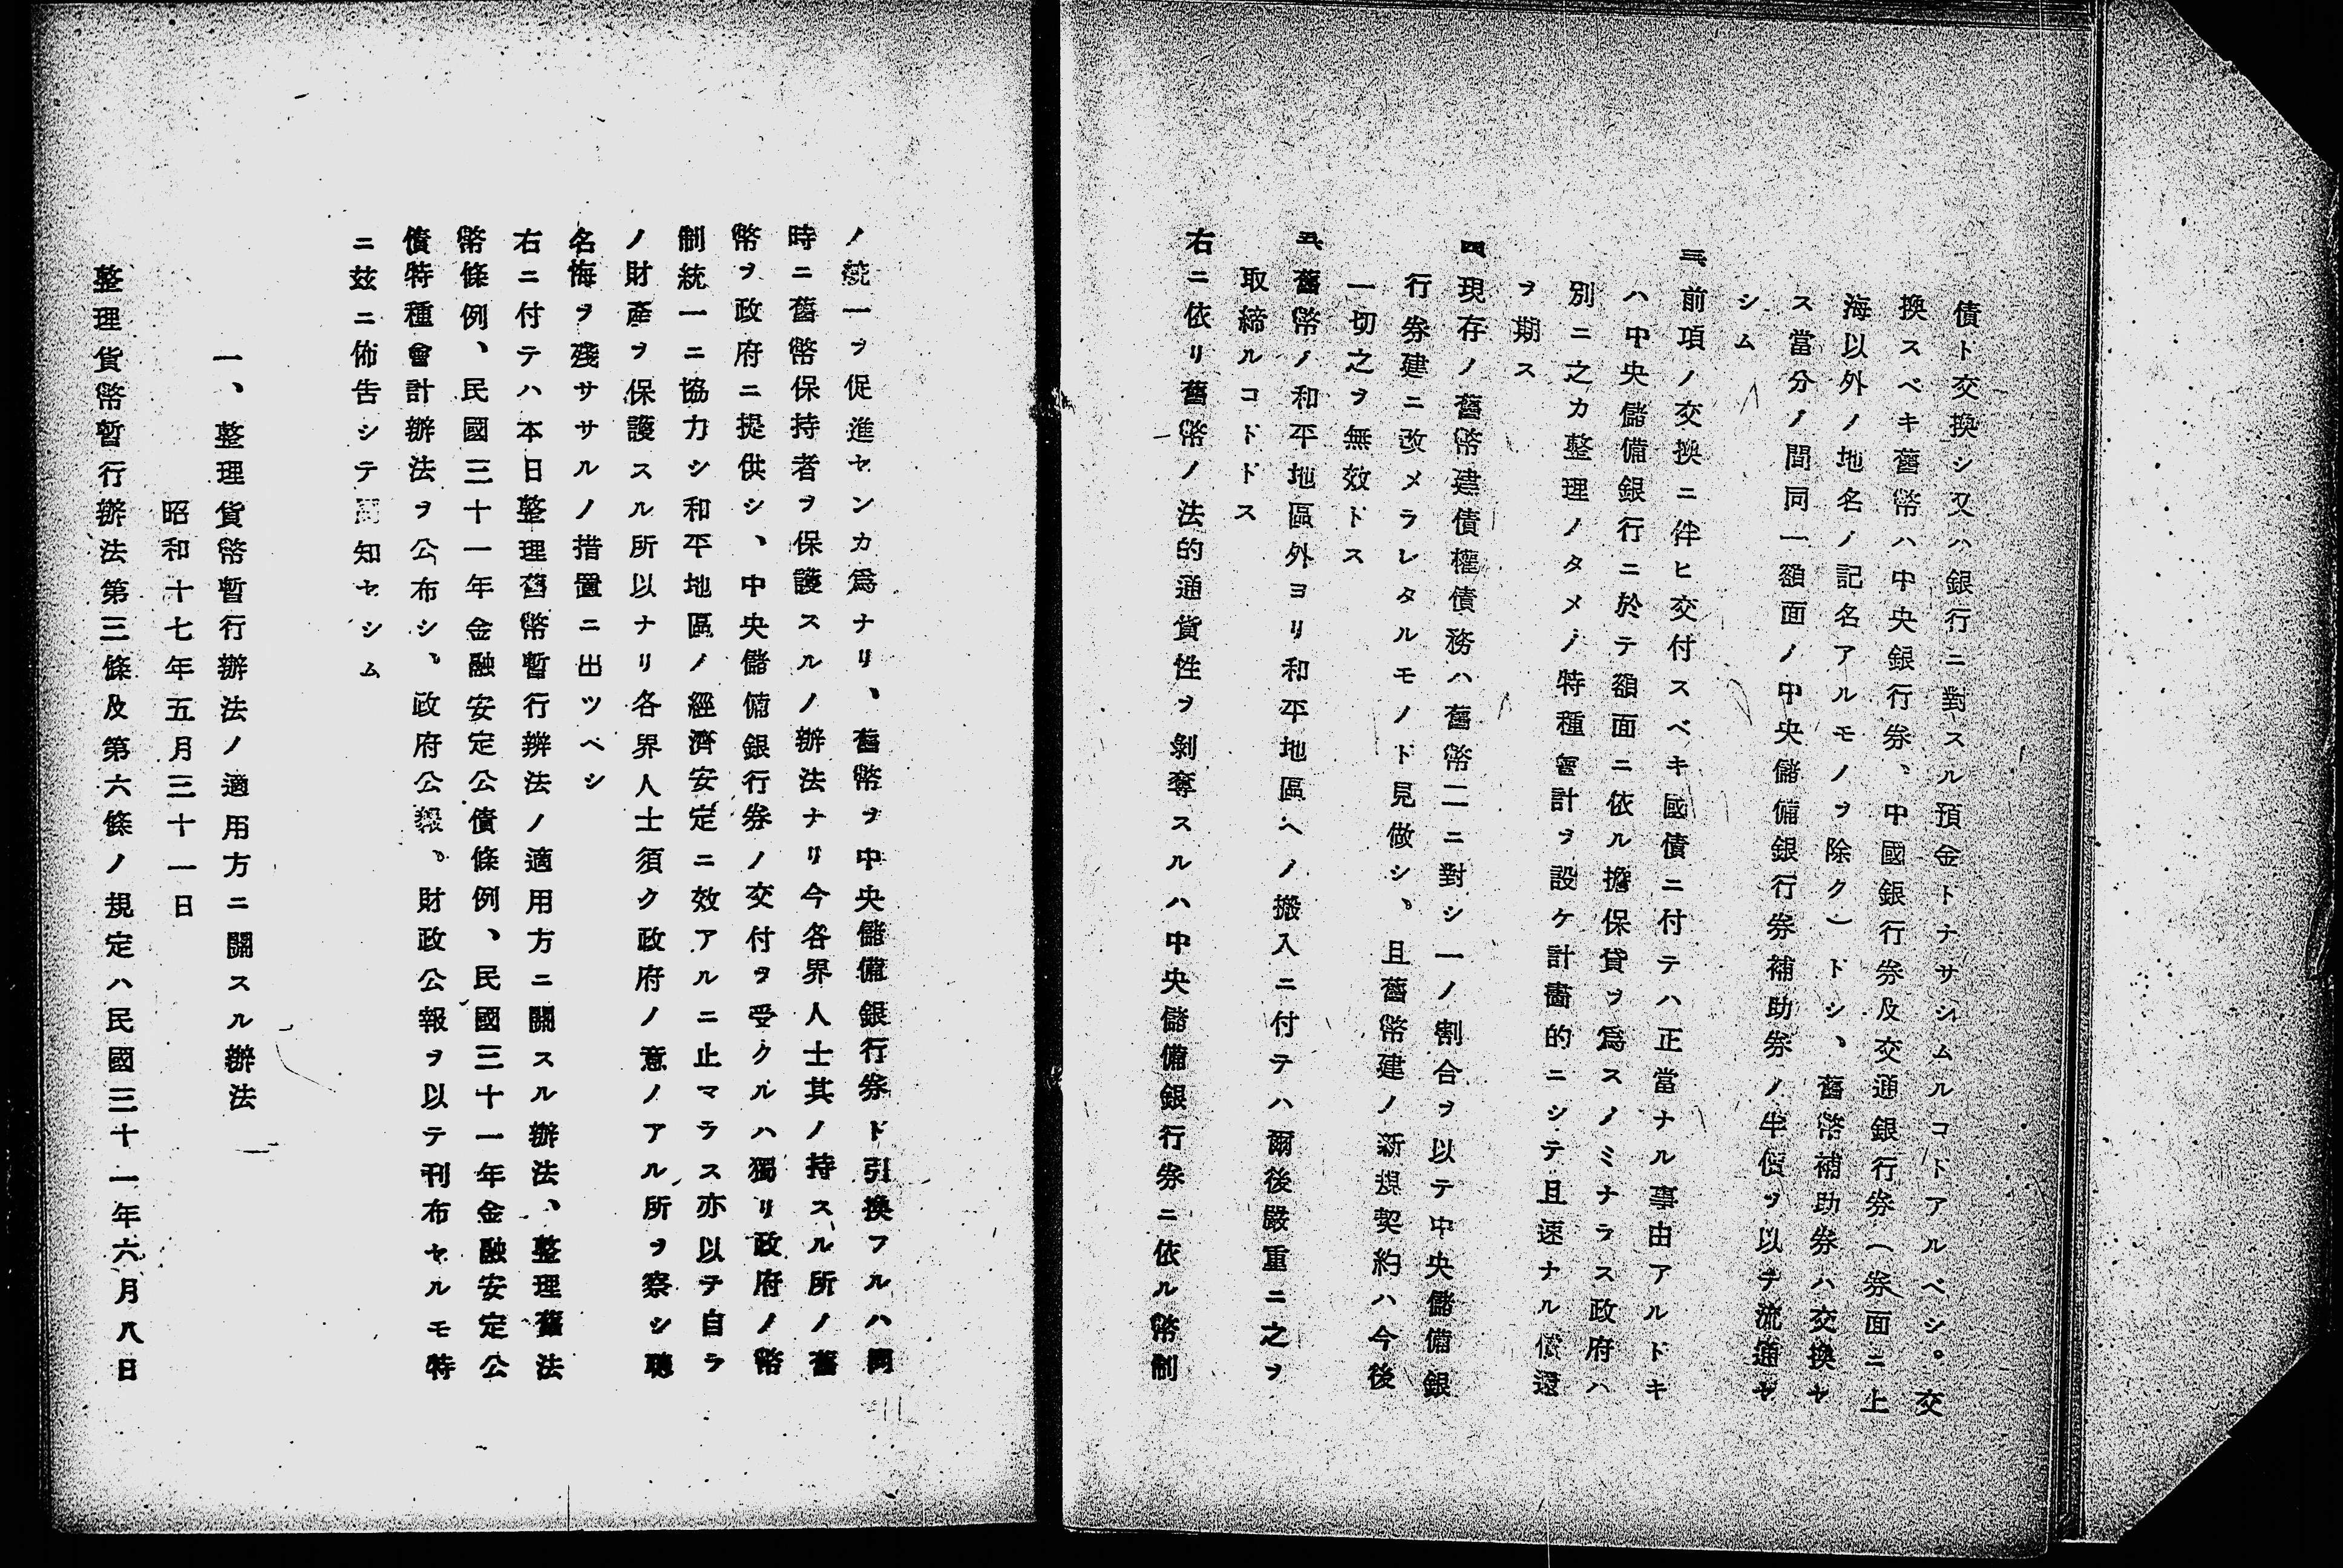 債ト交換シ又ハ銀行ニ對スル預金トナサシムルコトアルベシ。交
換スベキ舊幣ハ中央銀行券、中國銀行券及交通銀行券(券面ニ上
海以外ノ地名ノ記名アルモノヲ除ク)トシ、舊幣補助券ハ交換セ
ス當分ノ間同一額面ノ中央儲備銀行券補助券ノ半價ヲ以テ流通セ
シム
三、前項ノ交換ニ伴ヒ交付スベキ國債ニ付テハ正當ナル事由アルトキ
ハ中央儲備銀行ニ於テ額面ニ依ル擔保貸ヲ爲スノミナラス政府ハ
別ニ之カ整理ノタメノ特種會計ヲ設ケ計畫的ニシテ且速ナル償還
ヲ期ス
四、現存ノ舊幣建債權債務ハ舊幣二ニ對シ一ノ割合ヲ以テ中央儲備銀
行券建ニ改メラレタルモノト見做シ、且舊幣建ノ新規契約ハ今後
一切之ヲ無效トス
五、舊幣ノ和平地區外ヨリ和平地區ヘノ搬入ニ付テハ爾後嚴重ニ之ヲ
取締ルコトトス
右ニ依リ舊幣ノ法的通貨性ヲ剝奪スルハ中央儲備銀行券ニ依ル幣制
ノ統一ヲ促進センカ爲ナリ、舊幣ヲ中央儲備銀行券ト引換フルハ同
時ニ舊幣保持者ヲ保護スルノ辦法ナリ今各界人士其ノ持スル所ノ舊
幣ヲ政府ニ提供シ、中央儲備銀行券ノ交付ヲ受クルハ獨リ政府ノ幣
制統一ニ協力シ和平地區ノ經濟安定ニ效アルニ止マラス亦以テ自ラ
ノ財產ヲ保護スル所以ナリ各界人士須ク政府ノ意ノアル所ヲ察シ聊
名悔ヲ殘ササルノ措置ニ出ツベシ
右ニ付テハ本日整理舊幣暫行辦法ノ適用方ニ關スル辦法、整理舊法
幣條例、民國三十一年金融安定公債條例、民國三十一年金融安定公
債特種會計辦法ヲ公布シ、政府公報、財政公報ヲ以テ刊布セルモ特
ニ玆ニ佈告シテ周知セシム
一、整理貨幣暫行辦法ノ適用方ニ關スル辦法
昭和十七年五月三十一日
整理貨幣暫行辦法第三條及第六條ノ規定ハ民國三十一年六月八日